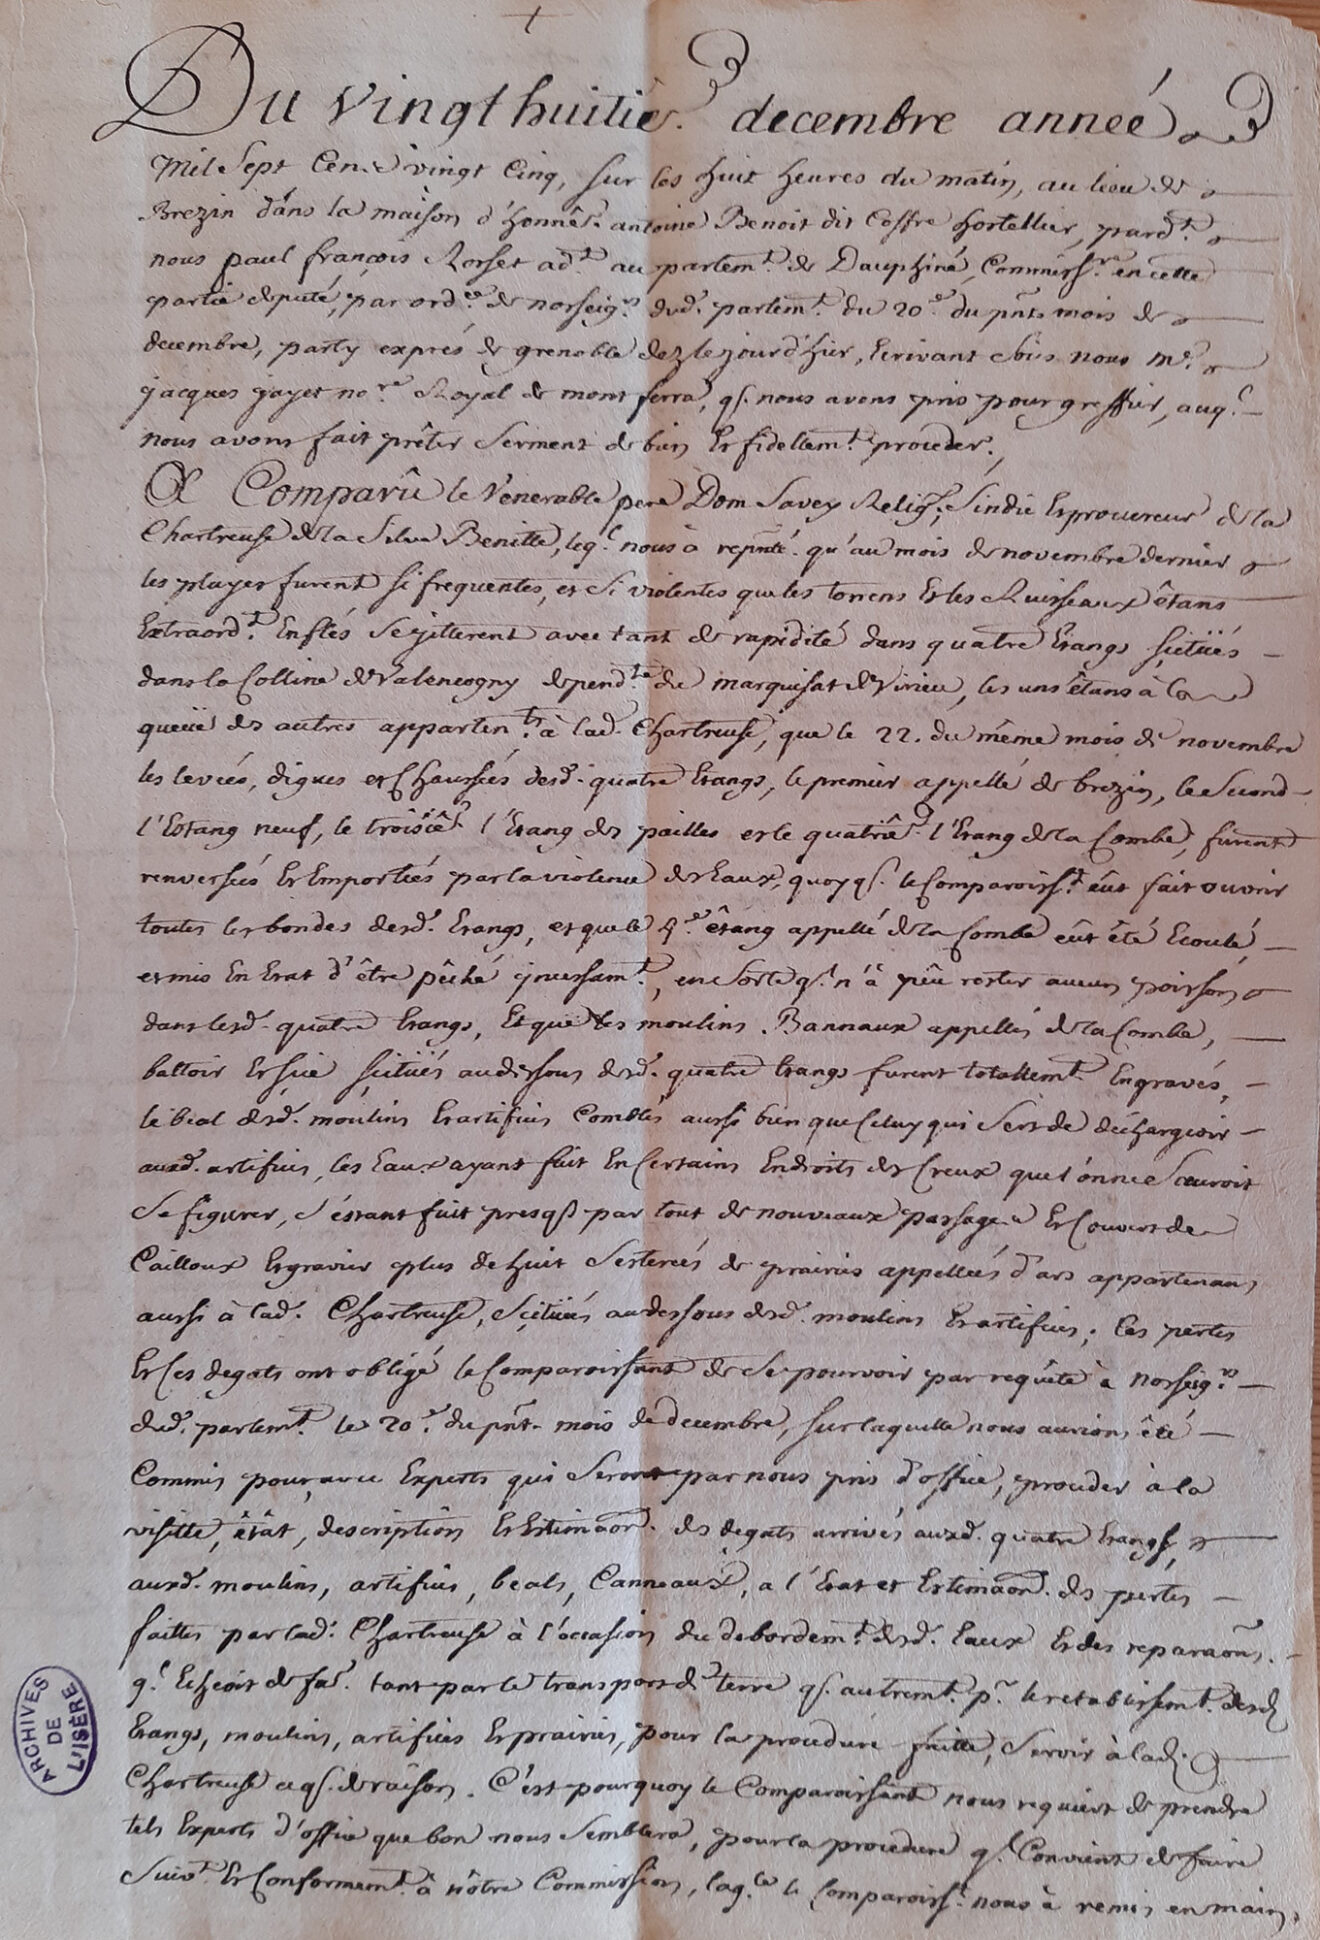 Du vingt huitiê. decembre année
Mil Sept Cent vingt Cinq, sur les huit heures du matin, au lieu de
Brezin dans la maison d'honnête. antoine Benoit dit Coffre hortellier, pard.t
nous paul françois Rorset ad.t au parlem.t de Dauphiné, Commiss.re en cette
partie deputé, par ord.ce de norseig.rs dud. parlem.t du 20.e du pñt mois de
decembre, party exprés de grenoble dez le jour d'hier, Ecrivant Sous nous m.e
jacques jayet no.re Royal de mont ferra, q. nous avons pris pour greffier, auq.l
nous avons fait prêter Serment de bien Et fidellem.t proceder.
A Comparû le Venerable pere Dom Savey Relig.x, Sindic Et procureur de la
Chartreuse de la Silve Benitte, leq.l nous à repñté. qu'au mois de novembre dernier
les playes furent si frequentes, et Si violentes que les torrens Et les Ruisseaux êtans
Extraord.t Enflés Se jetterent avec tant de rapidité dans quatre Etangs scitüés
dans la Colline de Valencogny depend.te du marquisat de Virieu, les uns êtans à la
queüe des autres apparten.ts à lad. Chartreuse, que le 22. du même mois de novembre
les levées, digues et Chaussées desd. quatre Etangs, le premier appellé de brezin, le Second
l'Estang neuf, le troisiê. l'Etang des pailles et le quatriê. l'Etang de la Combe, furent
renversés Et Emportés par la violence des Eaux, quoy q. le Comparoiss.t eût fait ouvrir
toutes les bondes desd. Etangs, et que le 4.e êtang appellé de la Combe eût êté Ecoulé,
et mis En Etat d'être pêché jncessam.t, en Sorte q. n'à pêu rester aucun poisson
dans lesd. quatre Etangs, Et que les moulins Bannaux appellés de la Combe,
battoir Et Sie scitüés audessous desd. quatre Etangs furent totallem.t Engravés,
le beal desd. moulins Et artifices Comblés aussi bien que Celuy qui Sert de déchargeoir
auxd. artifices, les Eaux ayant fait En Certains Endroits des Creux que l'on ne Sauroit
Se figurer, S'êstant fait presq. par tout de nouveaux passages Et Couvert de
Cailloux Et gravier plus de huit Sesterées de prairies appellées d'ars appartenans
aussi à lad. Chartreuse, Scitüés audessous desd. moulins Et artifices; Ces pertes
Et Ces degats ont obligé le Comparoissant de Se pourvoir par requête à norseig.rs
dud. parlem.t le 20.e du pñt. mois de decembre, sur laquelle nous aurions êté
Commis pour, avec Experts qui Seront par nous pris d'office, proceder à la
visitte, êtât, description Et Estimaõn. des degats arrivés auxd. quatre Etangs,
auxd. moulins, artifices, beals, Canneaux, a l'Etat et Estimaõn. des pertes
faittes par lad. Chartreuse à l'occasion du debordem.t desd. Eaux Et des reparaõns.
q.l Echeoit de fa.e tant par le transport de terre q. autrem.t p.r le retablissem.t desd.
Etangs, moulins, artifices Et prairies, pour la procedure faitte, Servir à lad.
Chartreuse ce q. de raison. C'est pourquoy le Comparoissant nous requiert de prendre
tels Experts d'office que bon nous Semblera, pour la procedure q.l Convient de faire
Suiv.t Et Conformem.t à nôtre Commission, laq.le le Comparoiss.t nous à remis en main,
ARCHIVES
DE
L'ISÈRE